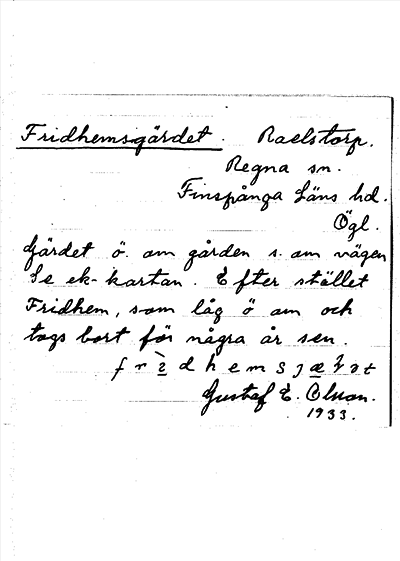 Fridhemsgärdet. Raelstorp.
Regna sn.
Finspånga Läns hd.
Ögl.
Gärdet ö. om gården s. om vägen
Se ek-kartan. Efter stället
Fridhem, som låg ö om och
togs bort för några år sen.
Gustaf E. Olson.
1933.